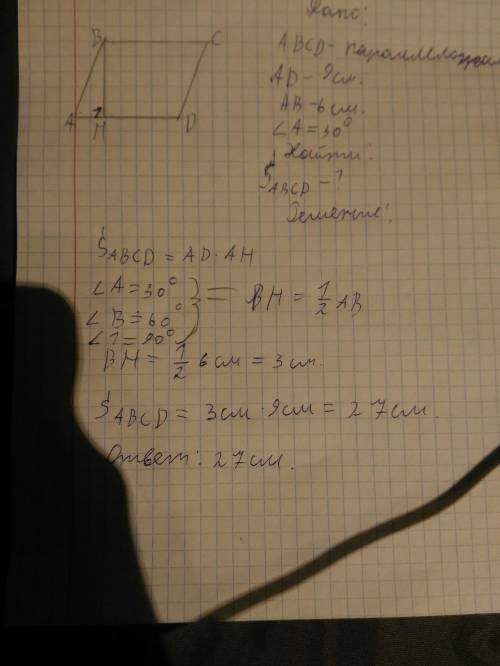 B C
A H D
Дано:
ABCD - параллелограмм
AD - 9см.
AB - 6 см.
∠A = 30°
Найти:
S ABCD - ?
Решение:
S ABCD = AD · AH
∠A = 30°
∠B = 60°
∠1 = 90°
BH = 1/2 AB
BH = 1/2 6 см = 3 см.
S ABCD = 3 см · 9 см = 27 см.
Ответ: 27 см.